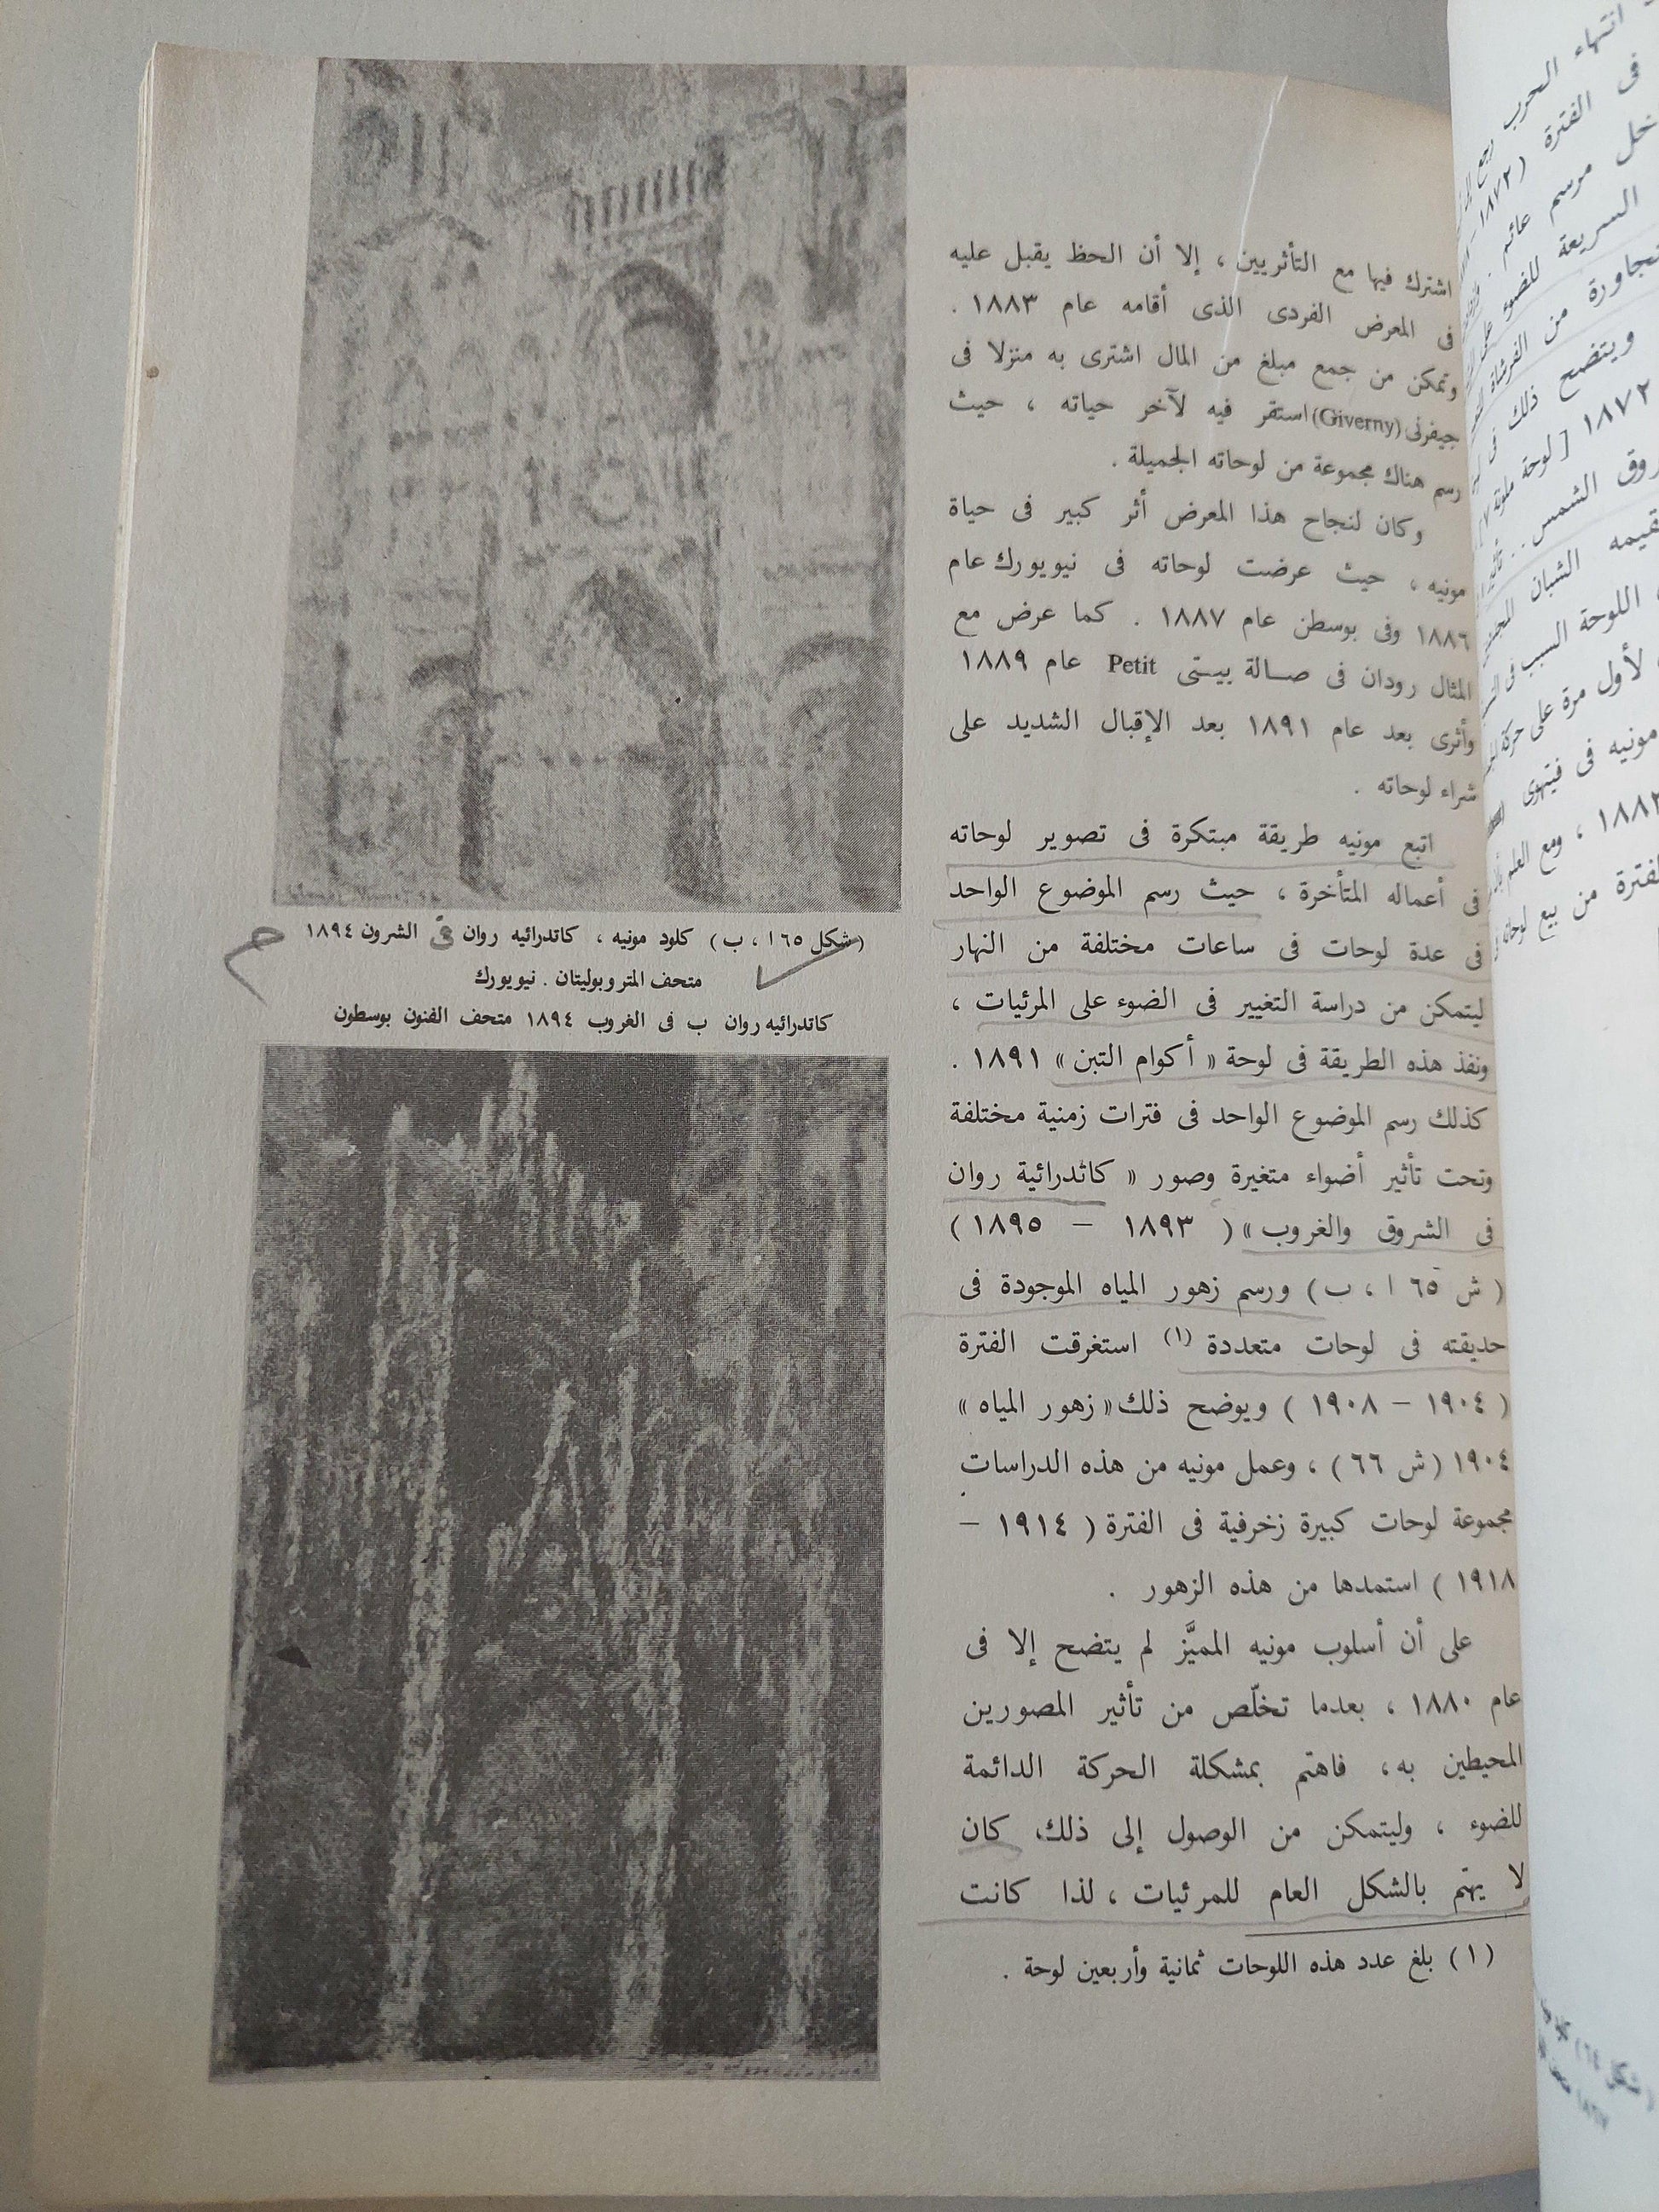 اشترك فيها مع التأثريين ، إلا أن الحظ يقبل عليه
فى المعرض الفردى الذى أقامه عام ١٨٨٣ .
وتمكن من جمع مبلغ من المال اشترى به منزلا فى
جيفرنى (Giverny) استقر فيه لآخر حياته ، حيث
رسم هناك مجموعة من لوحاته الجميلة .
وكان لنجاح هذا المعرض أثر كبير فى حياة
مونيه ، حيث عرضت لوحاته فى نيويورك عام
١٨٨٦ وفى بوسطن عام ١٨٨٧ . كما عرض مع
المثال رودان فى صالة بيتى Petit عام ١٨٨٩
وأثرى بعد عام ١٨٩١ بعد الإقبال الشديد على
شراء لوحاته .
اتبع مونيه طريقة مبتكرة فى تصوير لوحاته
فى أعماله المتأخرة ، حيث رسم الموضوع الواحد
فى عدة لوحات فى ساعات مختلفة من النهار
ليتمكن من دراسة التغيير فى الضوء على المرئيات ،
ونفذ هذه الطريقة فى لوحة « أكوام التبن » ١٨٩١ .
كذلك رسم الموضوع الواحد فى فترات زمنية مختلفة
وتحت تأثير أضواء متغيرة وصور « كاتدرائية روان
فى الشروق والغروب » ( ١٨٩٣ – ١٨٩٥ )
( ش ٦٥ ا ، ب ) ورسم زهور المياه الموجودة فى
حديقته فى لوحات متعددة (١) استغرقت الفترة
( ١٩٠٤ – ١٩٠٨ ) ويوضح ذلك « زهور المياه »
١٩٠٤ ( ش ٦٦ ) ، وعمل مونيه من هذه الدراسات
مجموعة لوحات كبيرة زخرفية فى الفترة ( ١٩١٤ –
١٩١٨ ) استمدها من هذه الزهور .
على أن أسلوب مونيه المميَّز لم يتضح إلا فى
عام ١٨٨٠ ، بعدما تخلّص من تأثير المصورين
المحيطين به ، فاهتم بمشكلة الحركة الدائمة
للضوء ، وليتمكن من الوصول إلى ذلك كان
لا يهتم بالشكل العام للمرئيات ، لذا كانت
(١) بلغ عدد هذه اللوحات ثمانية وأربعين لوحة .
(شكل ٦٥ ا ، ب) كلود مونيه ، كاتدرائيه روان فى الشرون ١٨٩٤
متحف المتروبوليتان . نيويورك
كاتدرائيه روان ب فى الغروب ١٨٩٤ متحف الفنون بوسطون
انتهاء الحرب رجع
فى الفترة ( ١٨٧٢ –
مرسم عائم .
السريعة للضوء على
من الفرشاة
ويتضح ذلك فى
١٨٧٢ [ لوحة ملونة ٧
الشمس . . تأثير
الشبان
اللوحة السبب فى
لأول مرة على حركة
مونيه فى فيتهوى
، ومع العلم
من بيع لوحاته